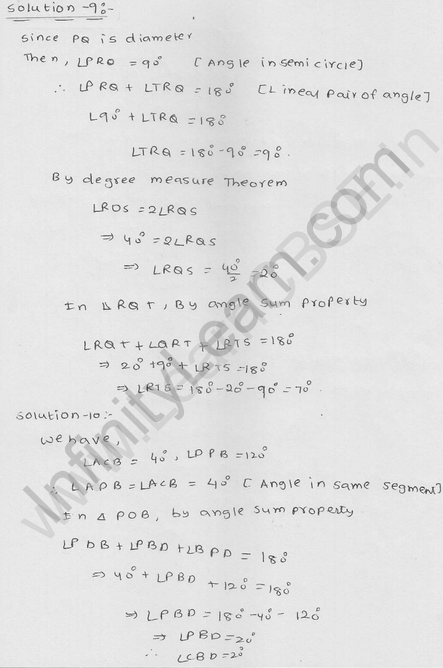 Solution -9:-
Since PQ is diameter
Then, ∠PRQ = 90° [Angle in semi circle]
∴ ∠PRQ + ∠TRQ = 180° [Lineal pair of angle]
∠90° + ∠TRQ = 180°
∠TRQ = 180° - 90° = 90°.
By degree measure Theorem
∠ROS = 2∠RQS
⇒ 40° = 2∠RQS
⇒ ∠RQS = 40°/2 = 20°
In ∆RQT, By angle sum property
∠RQT + ∠QRT + ∠RTS = 180°
⇒ 20° + 90° + ∠RTS = 180°
⇒ ∠RTS = 180° - 20° - 90° = 70°
Solution-10:-
We have,
∠ACB = 40°, ∠DPB = 120°
∴ ∠APB = ∠ACB = 40° [Angle in same segment]
In ∆POB, by angle sum property
∠PDB + ∠PBD + ∠BPD = 180°
⇒ 40° + ∠PBD + 120° = 180°
⇒ ∠PBD = 180° - 40° - 120°
⇒ ∠PBD = 20°
∴ ∠CBD = 20°
InfinityLearn.com